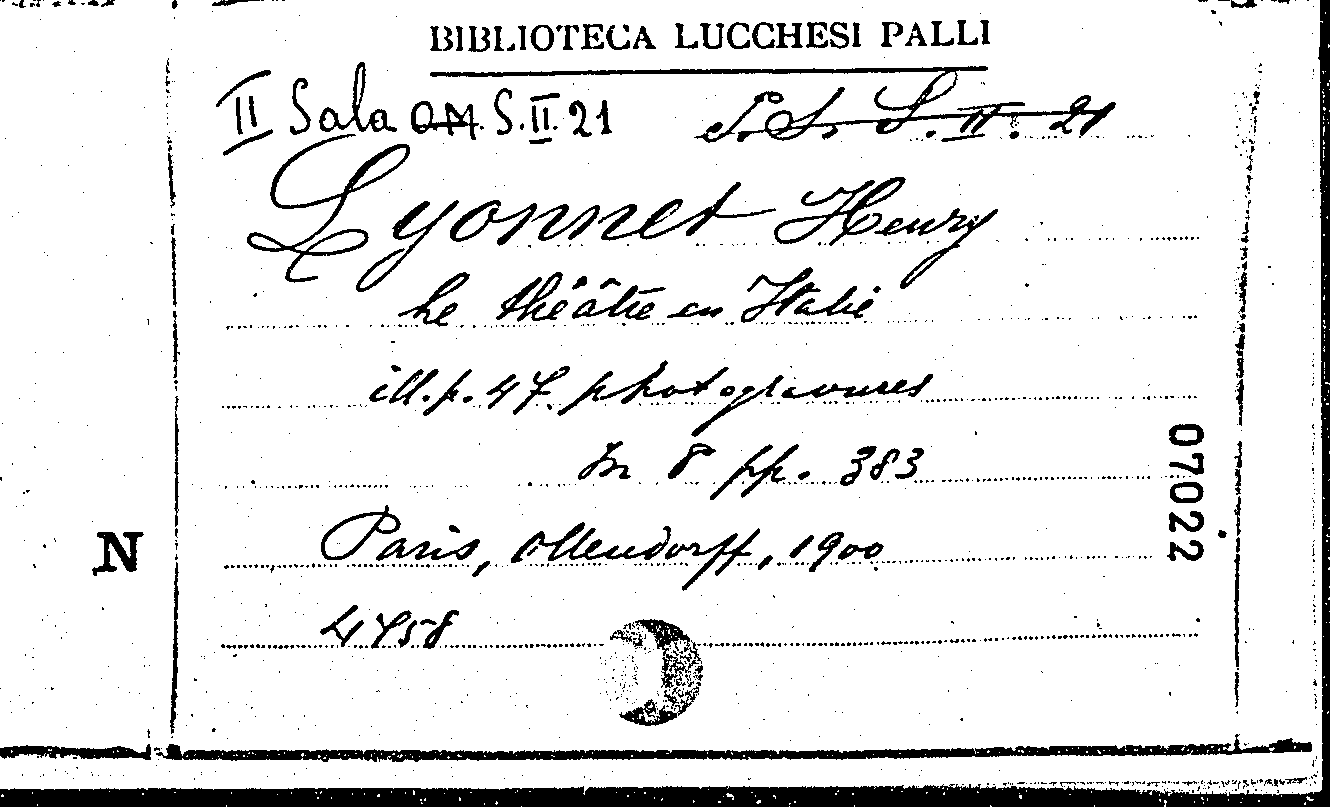 BIBLIOTECA LUCCHESI PALLI
II Sala O.M. S.II.21 P.S. S.II.21
Lyonnet Henry
Le théâtre en Italie
ill. p. 47 photogravures
In 8 pp. 383
Paris, Ollendorff, 1900
N
4758
07022